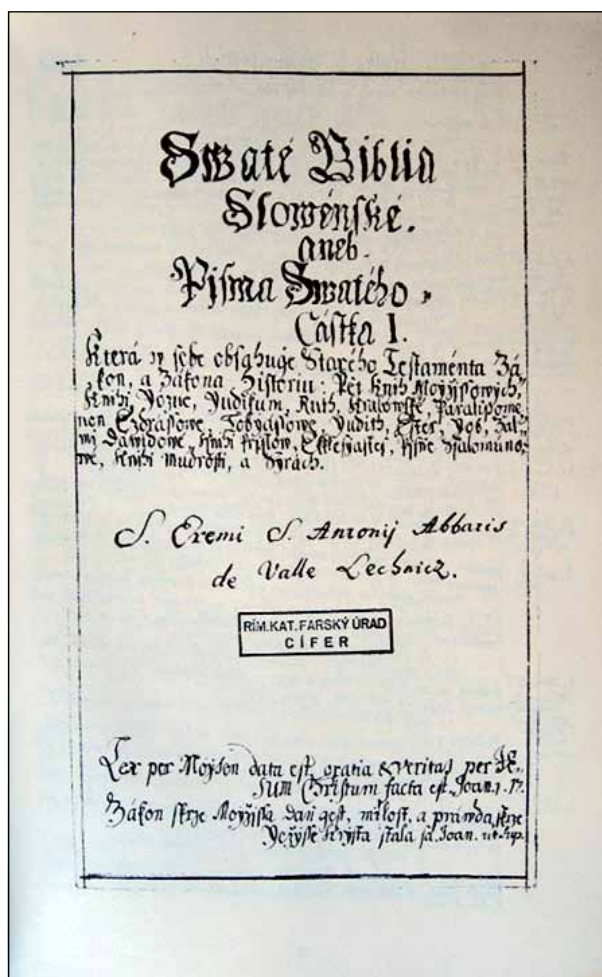 Swaté Biblia
Slowénské.
aneb.
Pisma Swatého.
Částka I.
Která w sebe obsahuge Starého Testaménta Zá-
kon, a Zákona Historiu: Pět Knih Moyžissowých,
Knihi Yozue, Yudikum, Ruth, Kralowské, Paralipome-
non Ezdrássowe, Tobyássowe, Yudith, Ester, Yob, Žal-
mi Dawidowe, Knihi Prislow, Ekklesyastej, Pisne Ssalomúno-
we, Knihi Mudrosti, a Syrách.
S. Eremi S. Antonij Abbatis
de Valle Lechnicz.
RÍM.KAT. FARSKÝ ÚRAD
CÍFER
Lex per Moysen data est, gratia & veritas per JE-
SUM Christum facta est. Joan. 1. 17.
Zákon skrze Moyžissa daň gest, milost, a prawda skrze
Yežysse Krysta stala sa. Joan. ut sup.